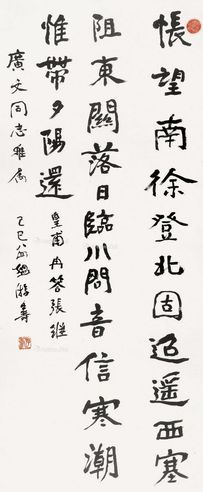 悵望南徐登北固迢遥西塞
阻東關落日臨川問音信寒潮
惟帶夕陽還 皇甫冉答張繼
廣文同志雅屬
己巳 游壽